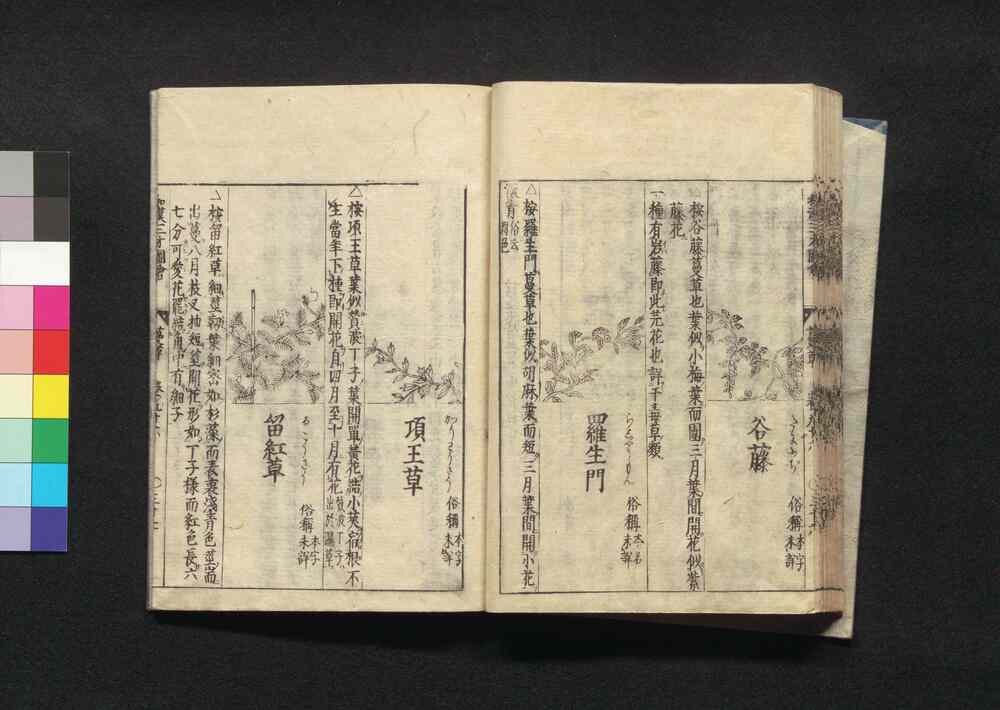 谷藤
俗稱
本字
未詳
按谷藤蔓草也葉似小梅葉而團三月葉間開花似紫
藤花
一種有岩藤即此芫花也詳于毒草類
羅生門
俗稱
本名
未詳
△按羅生門蔓草也葉似胡麻葉而短三月葉間開小花
項王草
俗稱
本字
未詳
△按項王草葉似賛波丁子葉開單黄花結小莢宿根不
生當年下種即開花自四月至十月有花
留紅草
るこうさう
俗稱
本字
未詳
按留紅草細莖靭葉細密如杉藻而表裏淺青色莖而
出蔓八月枝叉抽短莖開花形如丁子様而紅色長六
七分可愛花罷結角中有細子
和漢三才圖會